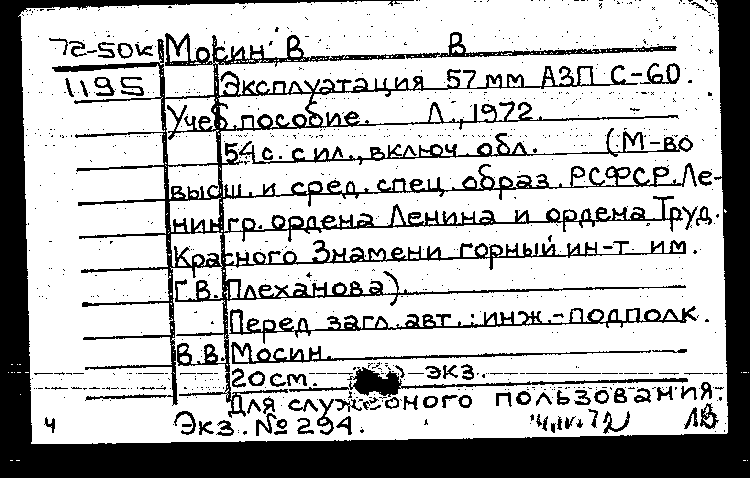 72-50к Мосин, В В
1195 Эксплуатация 57 мм АЗП С-60.
Учеб. пособие. Л., 1972.
54 с. с ил., включ. обл. (М-во
высш. и сред. спец. образ. РСФСР. Ле-
нингр. ордена Ленина и ордена Труд.
Красного Знамени горный ин-т им.
Г.В. Плеханова).
Перед загл. авт.: инж.-подполк.
В.В. Мосин.
20 см. экз.
Для служебного пользования.
ч Экз. № 294.